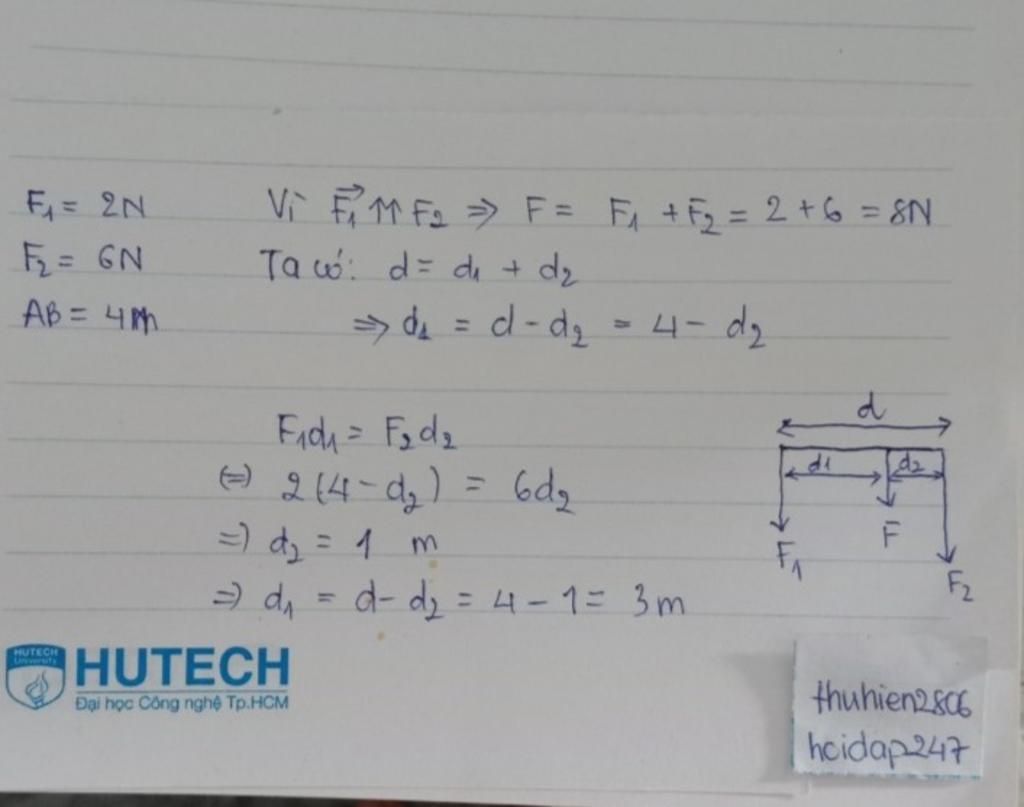 F₁ = 2N Vì F₁⃗ ↑↑ F₂ => F = F₁ + F₂ = 2 + 6 = 8N
F₂ = 6N Ta có: d = d₁ + d₂
AB = 4m => d₁ = d - d₂ = 4 - d₂
F₁d₁ = F₂d₂
(=) 2(4 - d₂) = 6d₂
=) d₂ = 1 m
=) d₁ = d - d₂ = 4 - 1 = 3m
d
d₁ d₂
F
F₁
F₂
HUTECH
University
HUTECH
Đại học Công nghệ Tp.HCM
thuhien2806
hoidap247